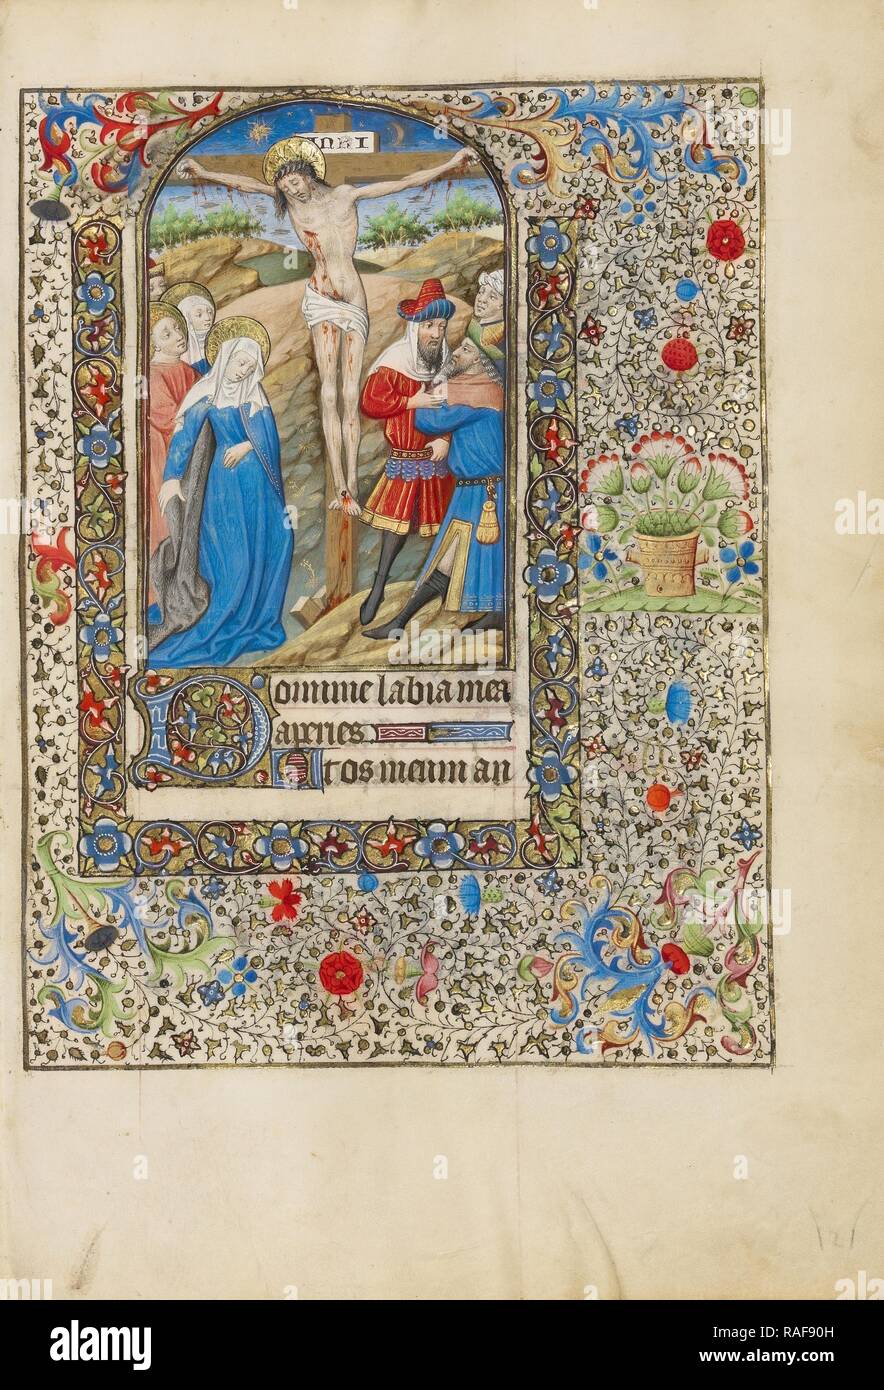 INRI
Domine labia mea
aperies
Et os meum an
121
alamy
Image ID: RAF90H
www.alamy.com